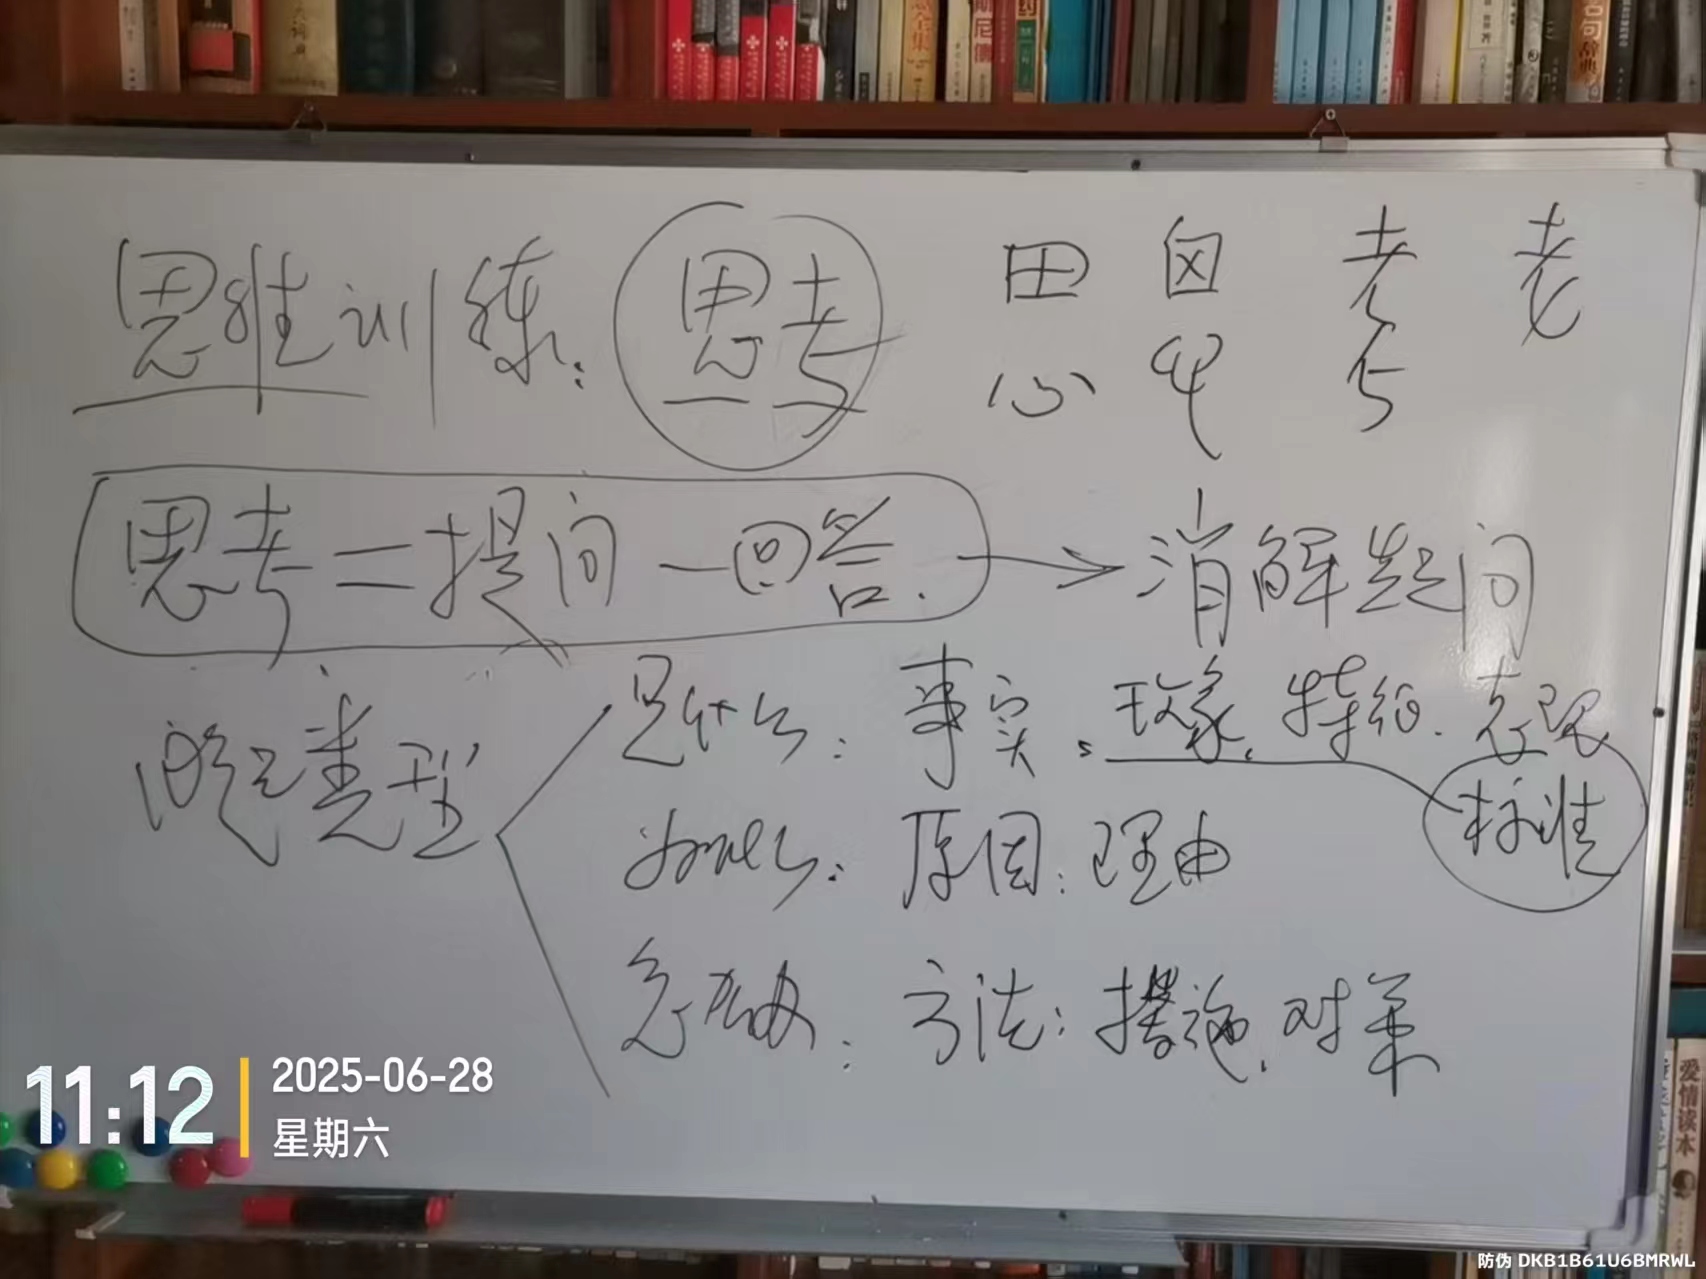 大词典
全集
句
辞典
思维训练：思考
田 囟 考 老
心 丂
思考＝提问—回答. → 消解疑问
问题类型
是什么：事实、现象、特征、表现
标准
为什么：原因：理由
怎么做：方法：措施、对策
11:12
2025-06-28
星期六
爱情读本
防伪 DKB1B61U6BMRWL